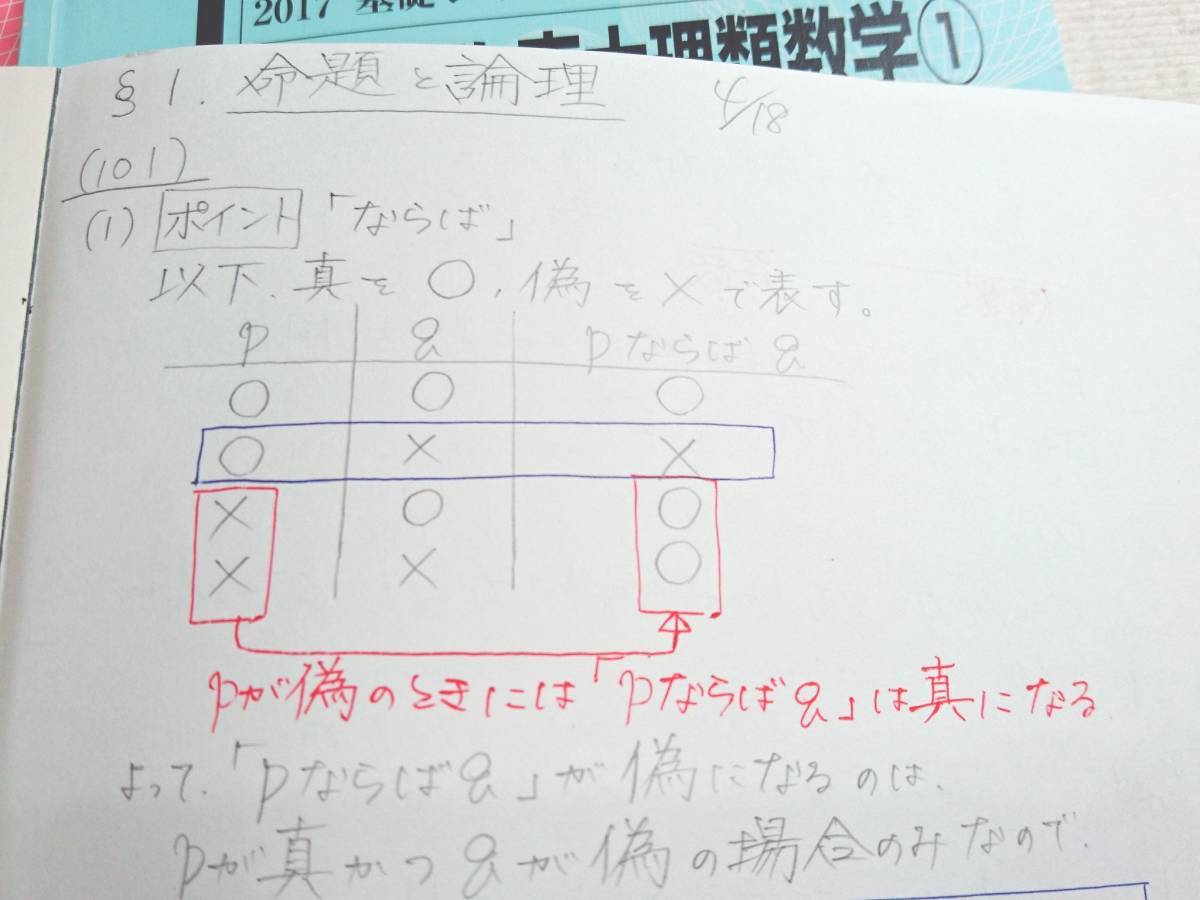 2017 基礎
理類数学①
§1. 命題と論理 4/18
(101)
(1) ポイント 「ならば」
以下、真を○, 偽を×で表す。
p q pならばq
○ ○ ○
○ × ×
× ○ ○
× × ○
pが偽のときには「pならばq」は真になる
よって、「pならばq」が偽になるのは、
pが真かつqが偽の場合のみなので、